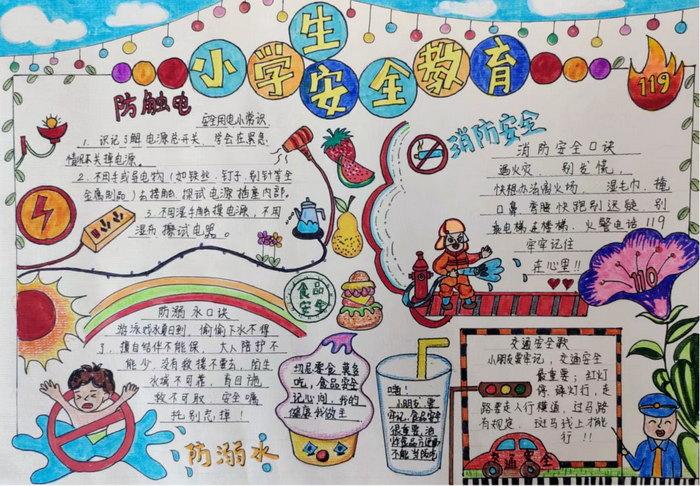 小学生安全教育
119
防触电
安全用电小常识
1. 识记了解电源总开关, 学会在紧急
情况下关掉电源。
2. 不用手或导电物(如铁丝、钉子、别针等金
金属制品)去接触、探试电源插座内部。
3. 不用湿手触摸电源, 不用
湿布擦试电器。
消防安全
消防安全口诀
遇火灾, 别发慌,
快想办法离火场, 湿毛巾, 掩
口鼻 弯腰快跑别迟疑 别
乘电梯走楼梯, 火警电话119
牢牢记住
在心里!!
110
食品
安全
防溺水口诀
游泳戏水夏日到, 偷偷下水不得
了, 擅自结伴不能保, 大人陪护不
能少, 没有救援不要去, 陌生
水域不可靠, 盲目施
救不可取, 安全嘱
托别忘掉!
防溺水
零食 莫多
吃, 食品安全
记心间, 我的
健康我做主
嗨!
小朋友, 要
牢记, 食品安全
很重要, 油
炸食品
不能当饭吃
交通安全歌
小朋友要牢记, 交通安全
最重要; 红灯
停, 绿灯行, 走
路要走人行横道, 过马路
有规定, 斑马线上才能
行!!
交通安全